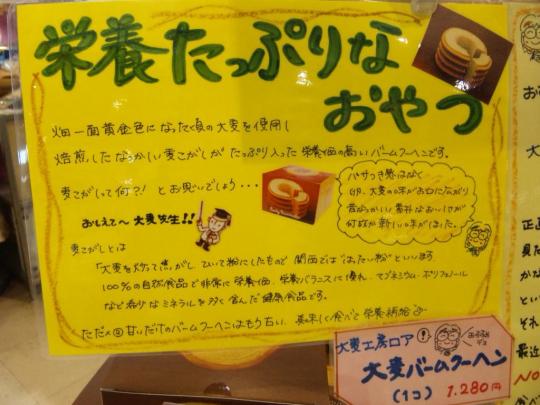 栄養たっぷりな
おやつ
畑一面黄金色になった頃の大麦を使用し
焙煎したなつかしい麦こがしがたっぷり入った栄養価の高いバームクーヘンです。
麦こがしって何?! とお思いでしょう・・・
おしえて〜大麦先生!!
麦こがしとは
「大麦を炒って焦がし、ひいて粉にしたもので 関西では"はったい粉"といいます。
100%の自然食品で非常に栄養価、栄養バランスに優れ、マグネシウム・ポリフェノール
など希少なミネラルを多く含んだ健康食品です。
ただ 甘いだけのバームクーヘンはもう古い、美味しく食べて栄養補給
パサつき感はなく
卵、大麦の味がお口に広がり
昔なつかしい素朴なおいしさが
何故か新しい味がしました。
大麦工房ロア
大麦バームクーヘン
(1コ) 1,280円